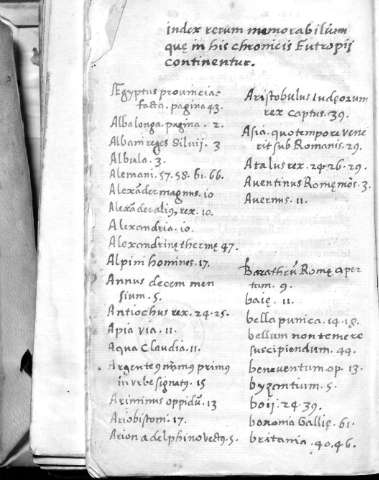 index rerum memorabilium
quę in his chronicis Eutropij
continentur.
Ægyptus prouincia
facta. pagina 43.
Albalonga. pagina. 2.
Albani reges siluij. 3
Albula. 3.
Alemani. 57. 58. 61. 66.
Alexãder magnus. 10
Alexãder alius, rex. 10.
Alexandria. 10.
Alexandrinę thermę 47.
Alpini homines. 17.
Annus decem men
sium. 5.
Antiochus rex. 24. 25.
Apia via. 11.
Aqua Claudia. 11.
Argenteus primus
in vrbe signatus. 15
Ariminus oppidũ. 13
Ariobistom. 17.
Arion a delphino vectus. 5.
Aristobulus Iudęorum
rex captus. 39.
Asia. quo tempore vene
rit sub Romanis. 29.
Atalus rex. 24. 26. 29.
Auentinus Romę mõs. 3.
Auernus. 11.
Barathrũ Romę aper
tum. 9.
baię. 11.
bella punica. 14. 18.
bellum non temere
suscipiendum. 44.
beneuentum op. 13.
byzentium. 5.
boij. 24. 39.
bononia Gallię. 61.
britania. 40. 46.